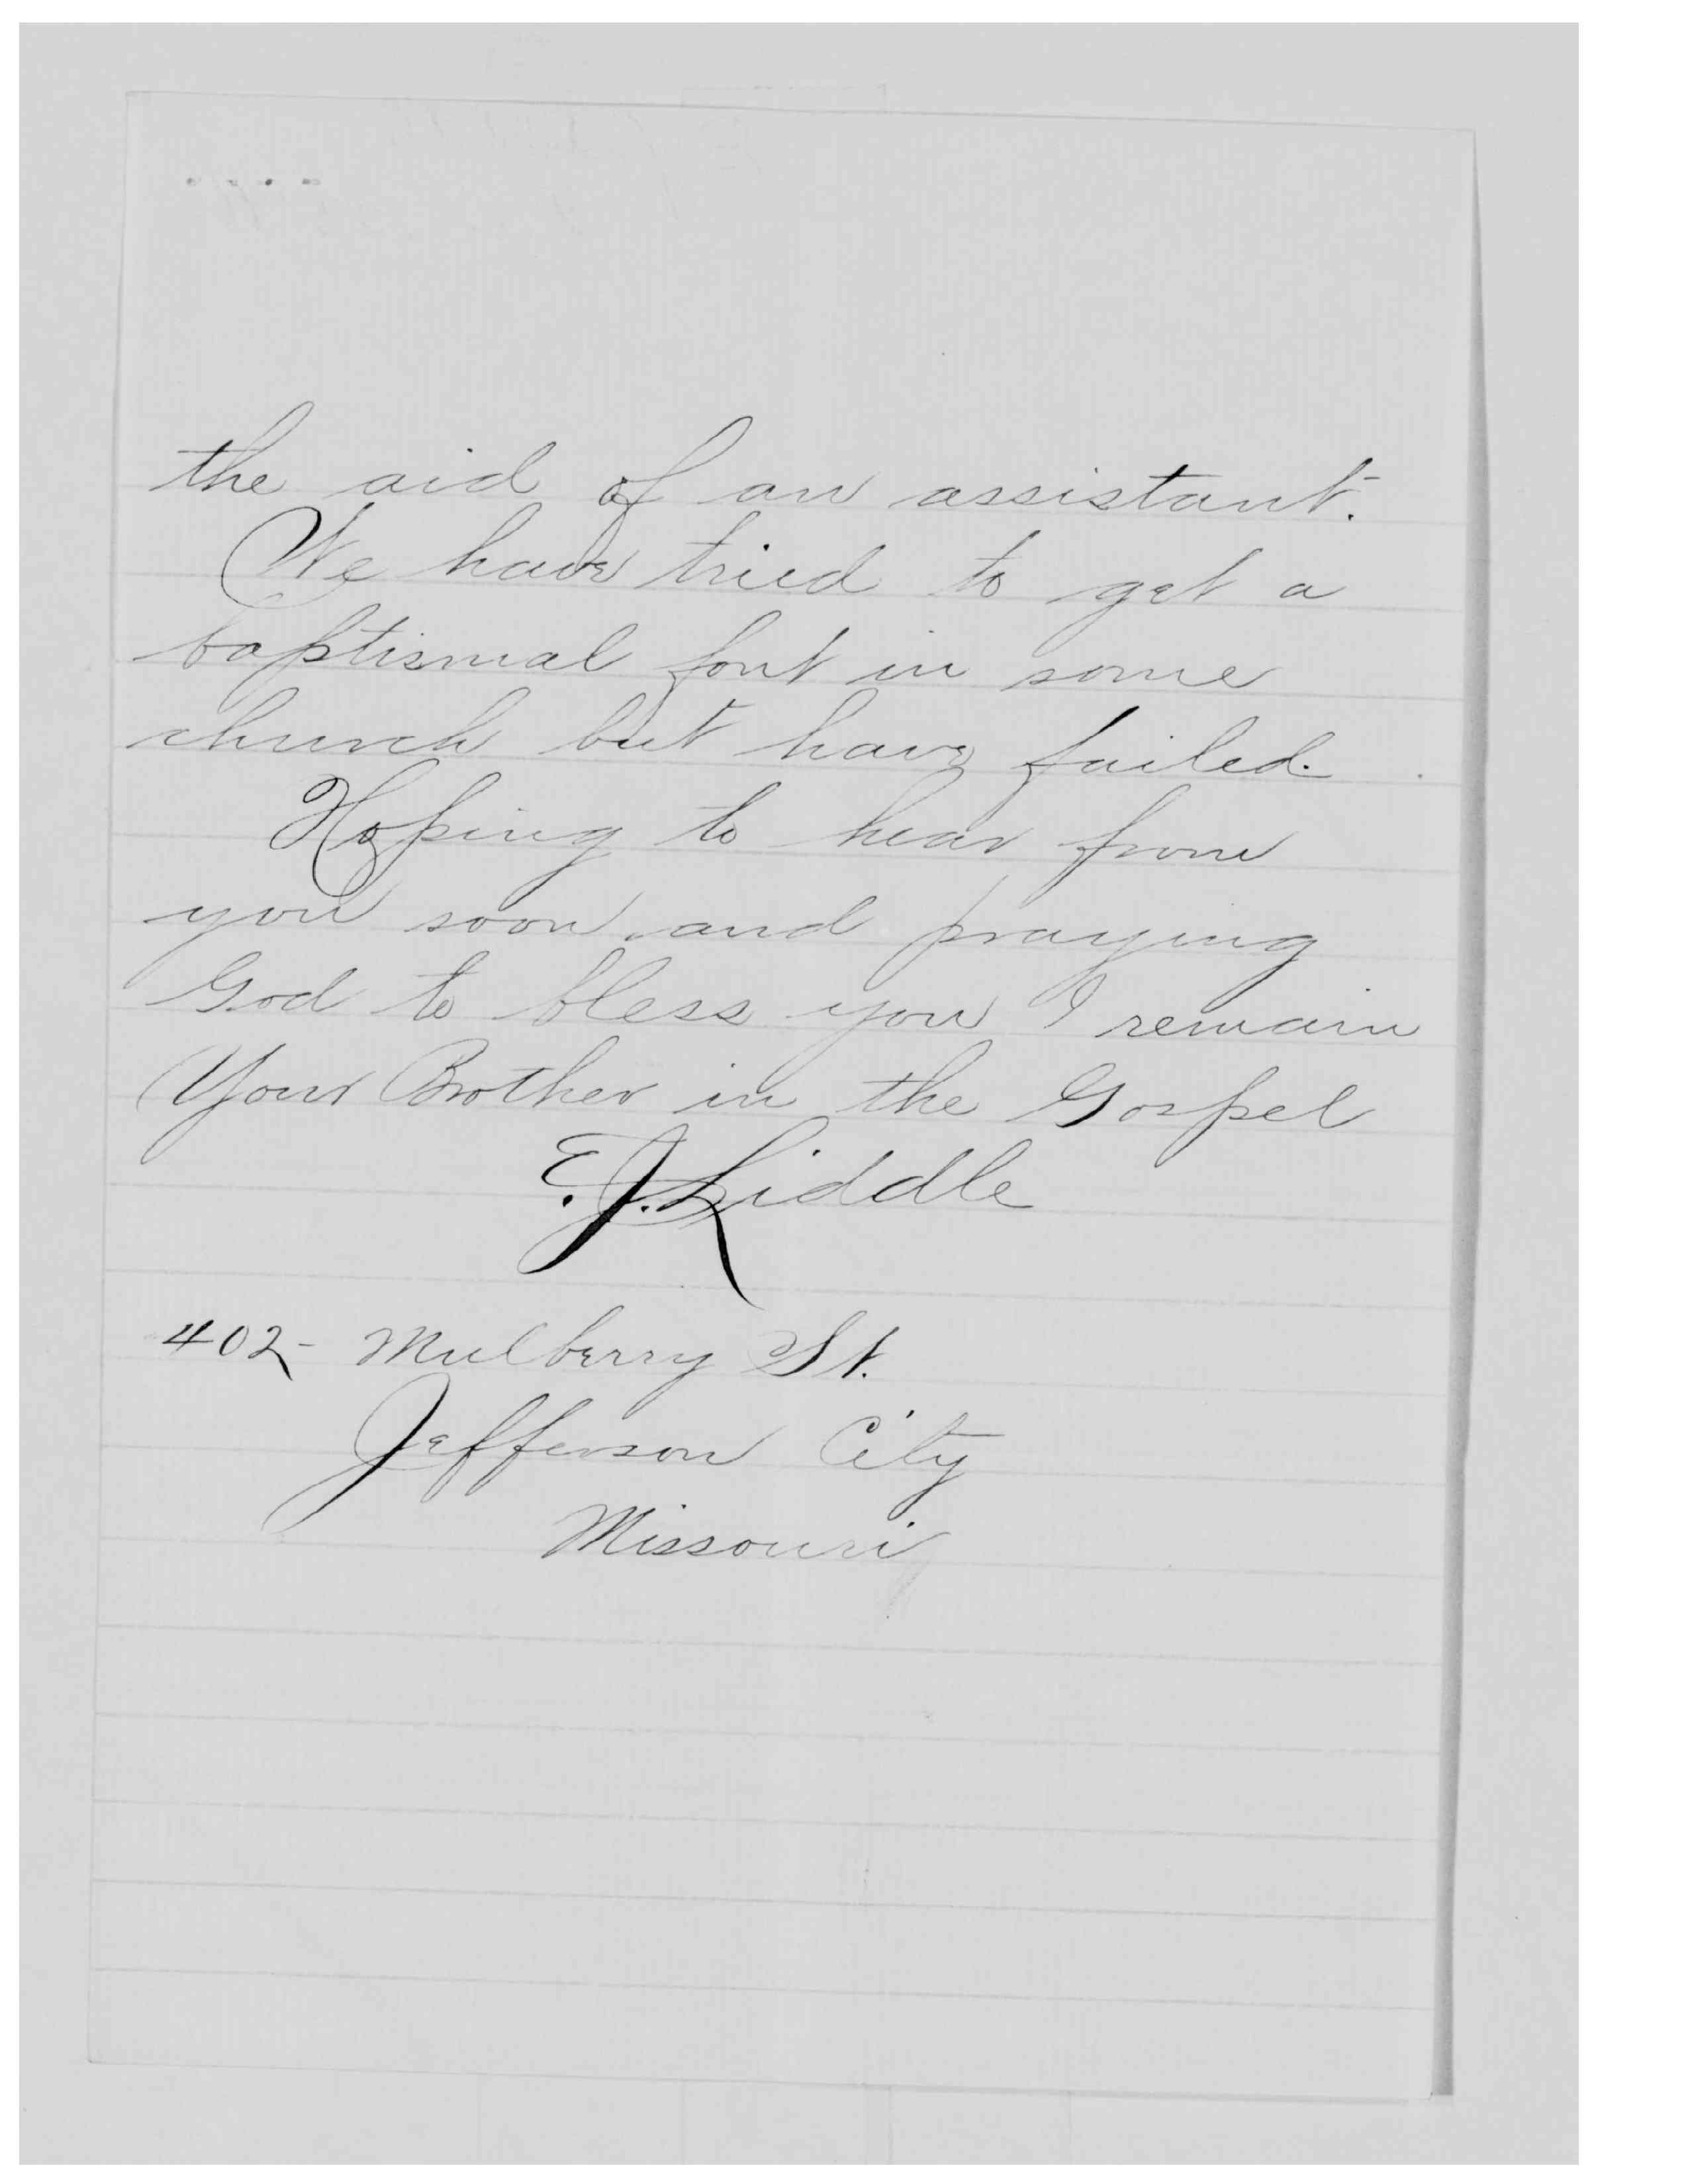 the aid of an assistant.
We have tried to get a
baptismal font in some
church but have failed.
Hoping to hear from
you soon and praying
God to bless you I remain
Your Brother in the Gospel
E. J. Liddle
402- Mulberry St.
Jefferson City
Missouri